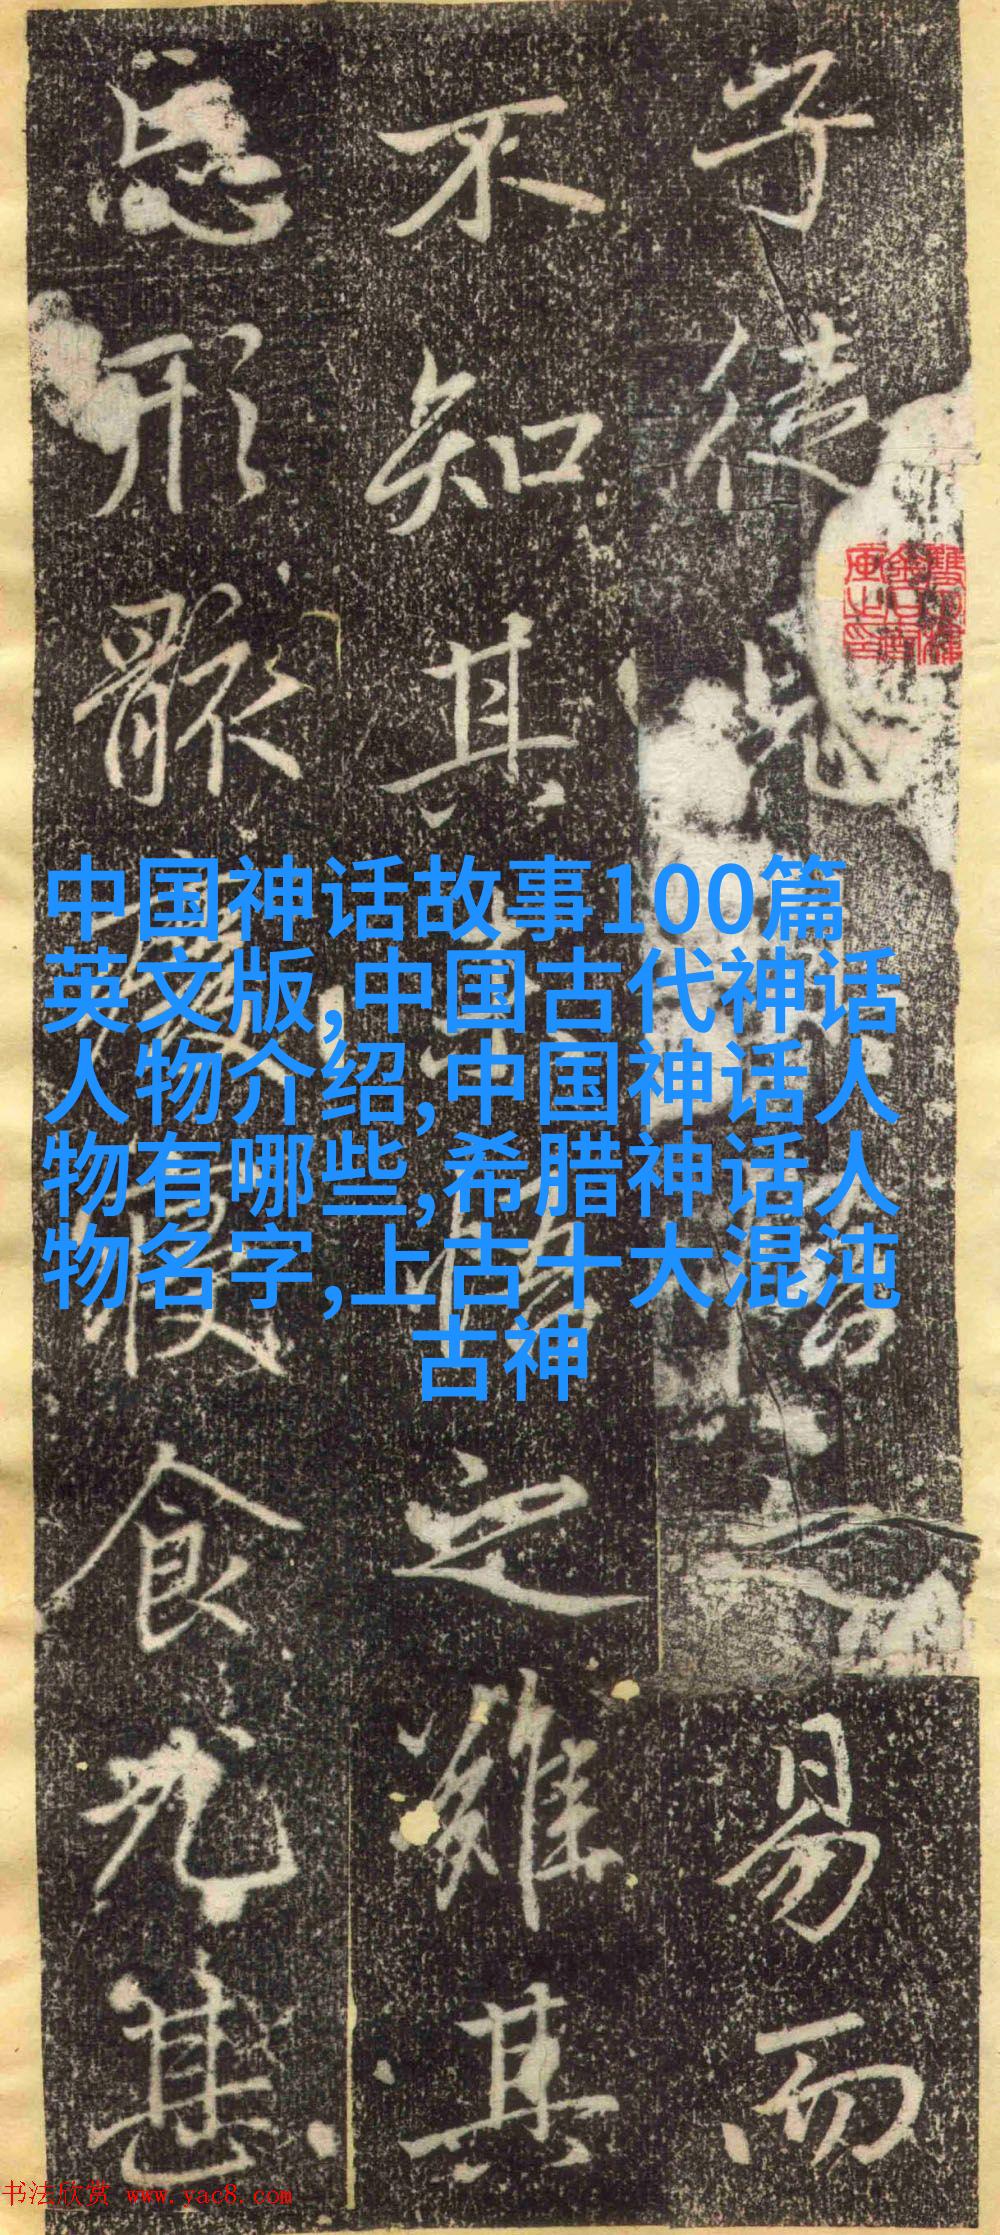 子使之易而
不知其之難其
忘形骸廢寢食尤甚
中国神话故事100篇
英文版,中国古代神话
人物介绍,中国神话人
物有哪些,希腊神话人
物名字,上古十大混沌
古神
书法欣赏 www.yac8.com